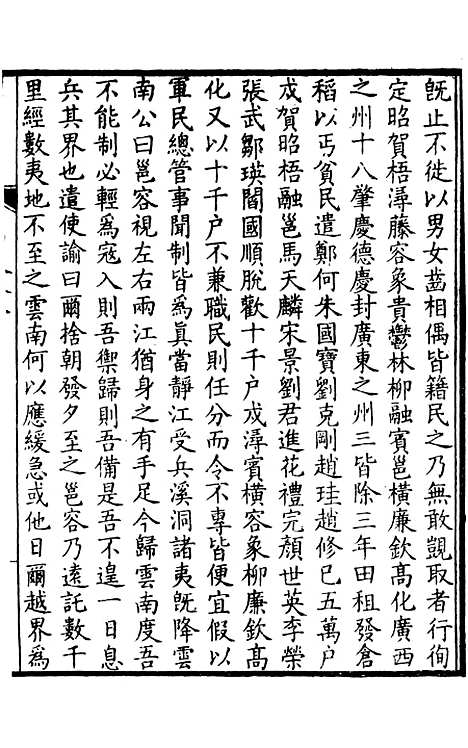 既止不徙以男女齒相偶皆籍民之乃無敢覬取者行徇
定昭賀梧潯藤容象貴鬱林柳融賓邕橫廉欽高化廣西
之州十八肇慶德慶封廣東之州三皆除三年田租發倉
稻以丐貧民遣鄭何朱國寶劉克剛趙珪趙修已五萬戶
戍賀昭梧融邕馬天麟宋景劉君進花禮完顏世英李榮
張武鄒瑛閻國順脫歡十千户戍潯賓橫容象柳廉欽高
化又以十千户不兼職民則任分而令不專皆便宜假以
軍民總管事聞制皆為眞當靜江受兵溪洞諸夷既降雲
南公曰邕容視左右兩江猶身之有手足今歸雲南度吾
不能制必輕為寇入則吾禦歸則吾備是吾不遑一日息
兵其界也遣使諭曰爾捨朝發夕至之邕容乃遠託數千
里經數夷地不至之雲南何以應緩急或他日爾越界為